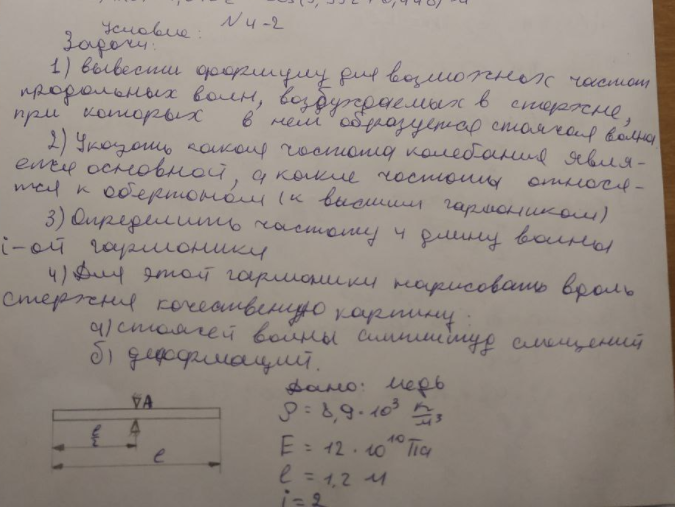 N 4-2
Условие:
Задачи:
1) вывести формулу для возможных частот
продольных волн, возбуждаемых в стержне,
при которых в нем образуется стоячая волна
2) Указать какая частота колебания явля-
ется основной, а какие частоты относя-
тся к обертонам (к высшим гармоникам)
3) Определить частоту и длину волны
i-ой гармоники
4) Для этой гармоники нарисовать вдоль
стержня качественную картину:
а) стоячей волны амплитуд смещений
б) деформаций.
Дано: медь
A
ρ = 8,9·10³ кг/м³
ℓ/2
E = 12·10¹⁰ Па
ℓ
ℓ = 1,2 м
i = 2